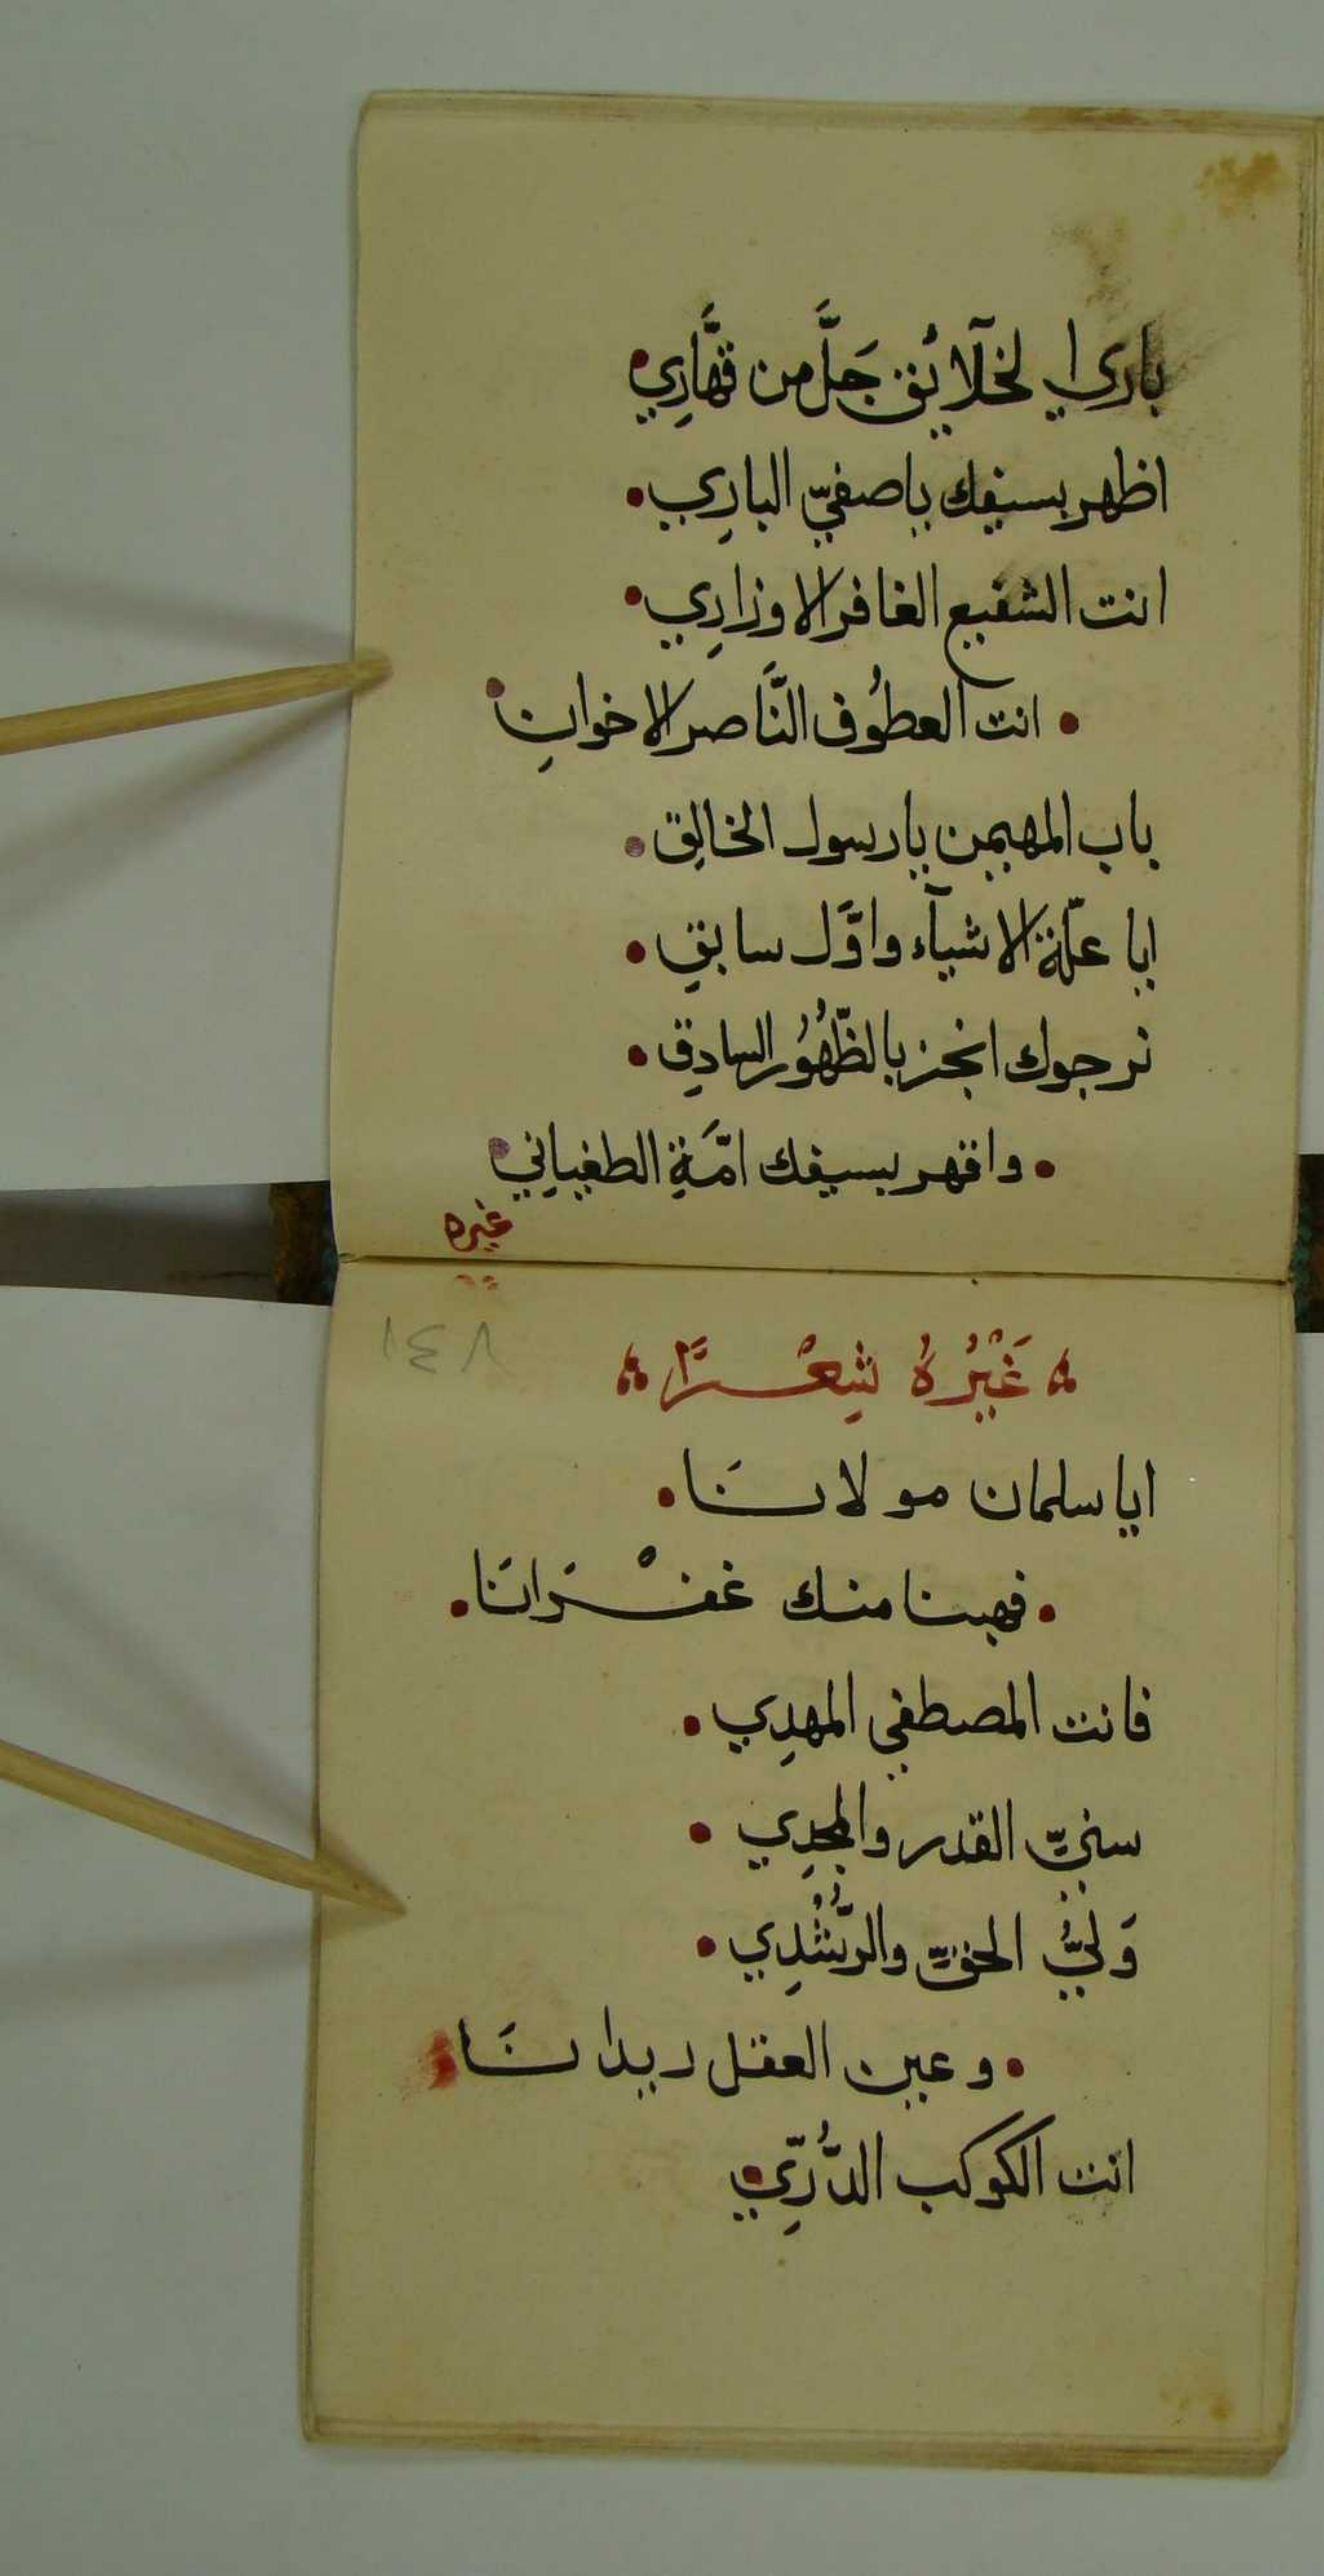 باري الخلآئق جَلَّ من قهَّارِي
اظهر بسيفك ياصفيّ البارِي
انت الشفيع الغافر الاوزارِي
انت العطُوف النَّاصر الاخوانِ
باب المهيمن يارسول الخالِق
ايا علّة الاشيآء واوَّل سابقِ
نرجوك انجز بالظّهُوُر السادِق
واقهر بسيفك امَّةِ الطغيانِي
غيره
غَيْرُهُ شِعْرًا
ايا سلمان مولانَا
فهبنا منك غفْرَانَا
فانت المصطفي المهدِي
سنيّ القدر والمجدِي
وَليُّ الحقّ والرُّشْدِي
وعين العقل ريدانَا
انت الكوكب الدُّرِّي